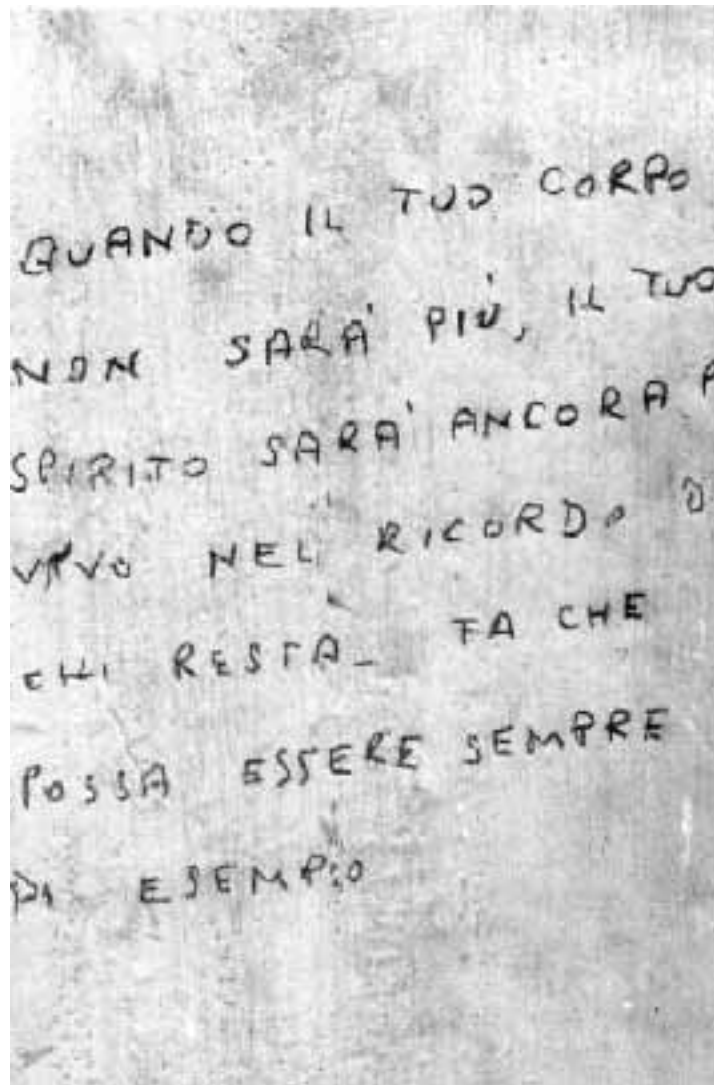 QUANDO IL TUO CORPO
NON SARA' PIÙ, IL TUO
SPIRITO SARA' ANCORA
VIVO NEL RICORDO
CHI RESTA_ FA CHE
POSSA ESSERE SEMPRE
DI ESEMPIO